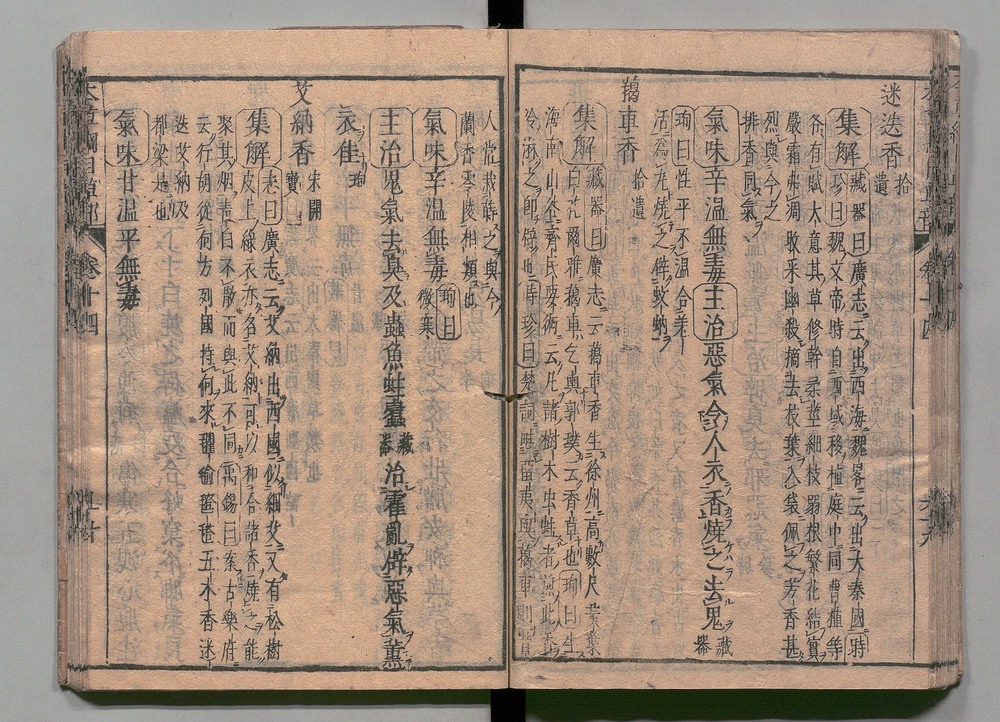 迷迭香 拾遺
集解 藏器曰廣志云出西海魏畧云出大秦國時
珍曰魏文帝時自西域移植庭中同曹植等
各有賦大意其草修幹柔莖細枝弱根繁花結實
嚴霜弗凋收采幽殺摘去枝葉入袋佩之芳香甚
烈與今之
排香同氣
氣味辛溫無毒主治惡氣令人衣香燒之去鬼 藏器
珣曰性平不溫合羌
活為丸燒之辟蚊蚋
藒車香 拾遺
集解 藏器曰廣志云藒車香生徐州高數尺黃葉
白花爾雅藒車乞輿郭璞云香草也珣曰生
海南山谷齊民要術云凡諸樹木虫蛀者煎此香
冷淋之即辟也時珍曰楚詞畦留夷與藒車則昔
人常栽蒔之與今
蘭香零陵相類也
氣味辛溫無毒 珣曰微寒
主治鬼氣去臭及蟲魚蛀蠹 藏器 治霍亂辟惡氣薰
衣佳 珣
艾納香 宋開寶
集解 志曰廣志云艾納出西國似細艾又有松樹
皮上綠衣亦名艾納可以和合諸香燒之能
聚其烟青白不散而與此不同禹錫曰案古樂府
云行胡從何方列國持何來氍毹㲪㲣五木香迷
迭艾納及
都梁是也
氣味甘溫平無毒
卷十四